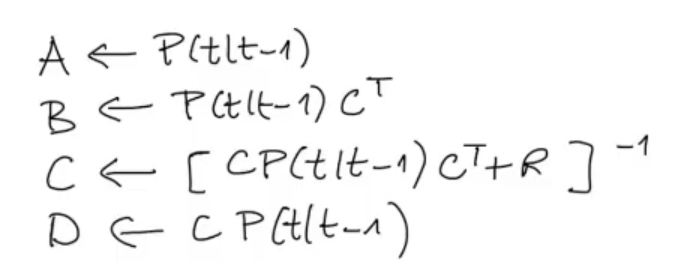 A ← P(t|t-1)
B ← P(t|t-1) C^T
C ← [ CP(t|t-1) C^T + R ]^-1
D ← C P(t|t-1)